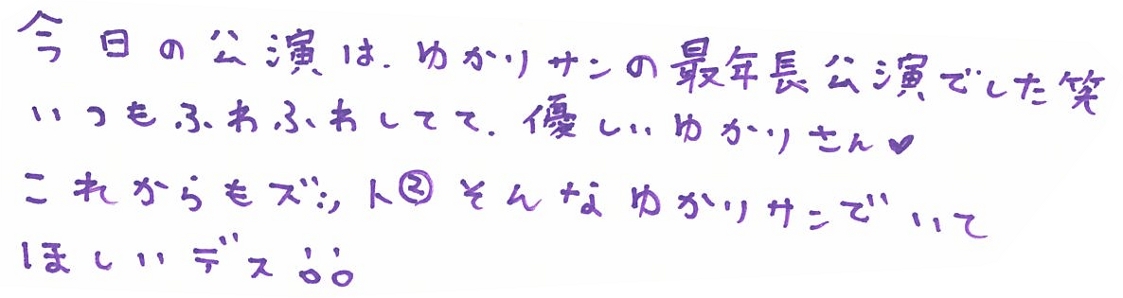 今日の公演は、ゆかりサンの最年長公演でした笑
いつもふわふわしてて、優しいゆかりさん♥
これからもズット②そんなゆかりサンでいて
ほしいデス